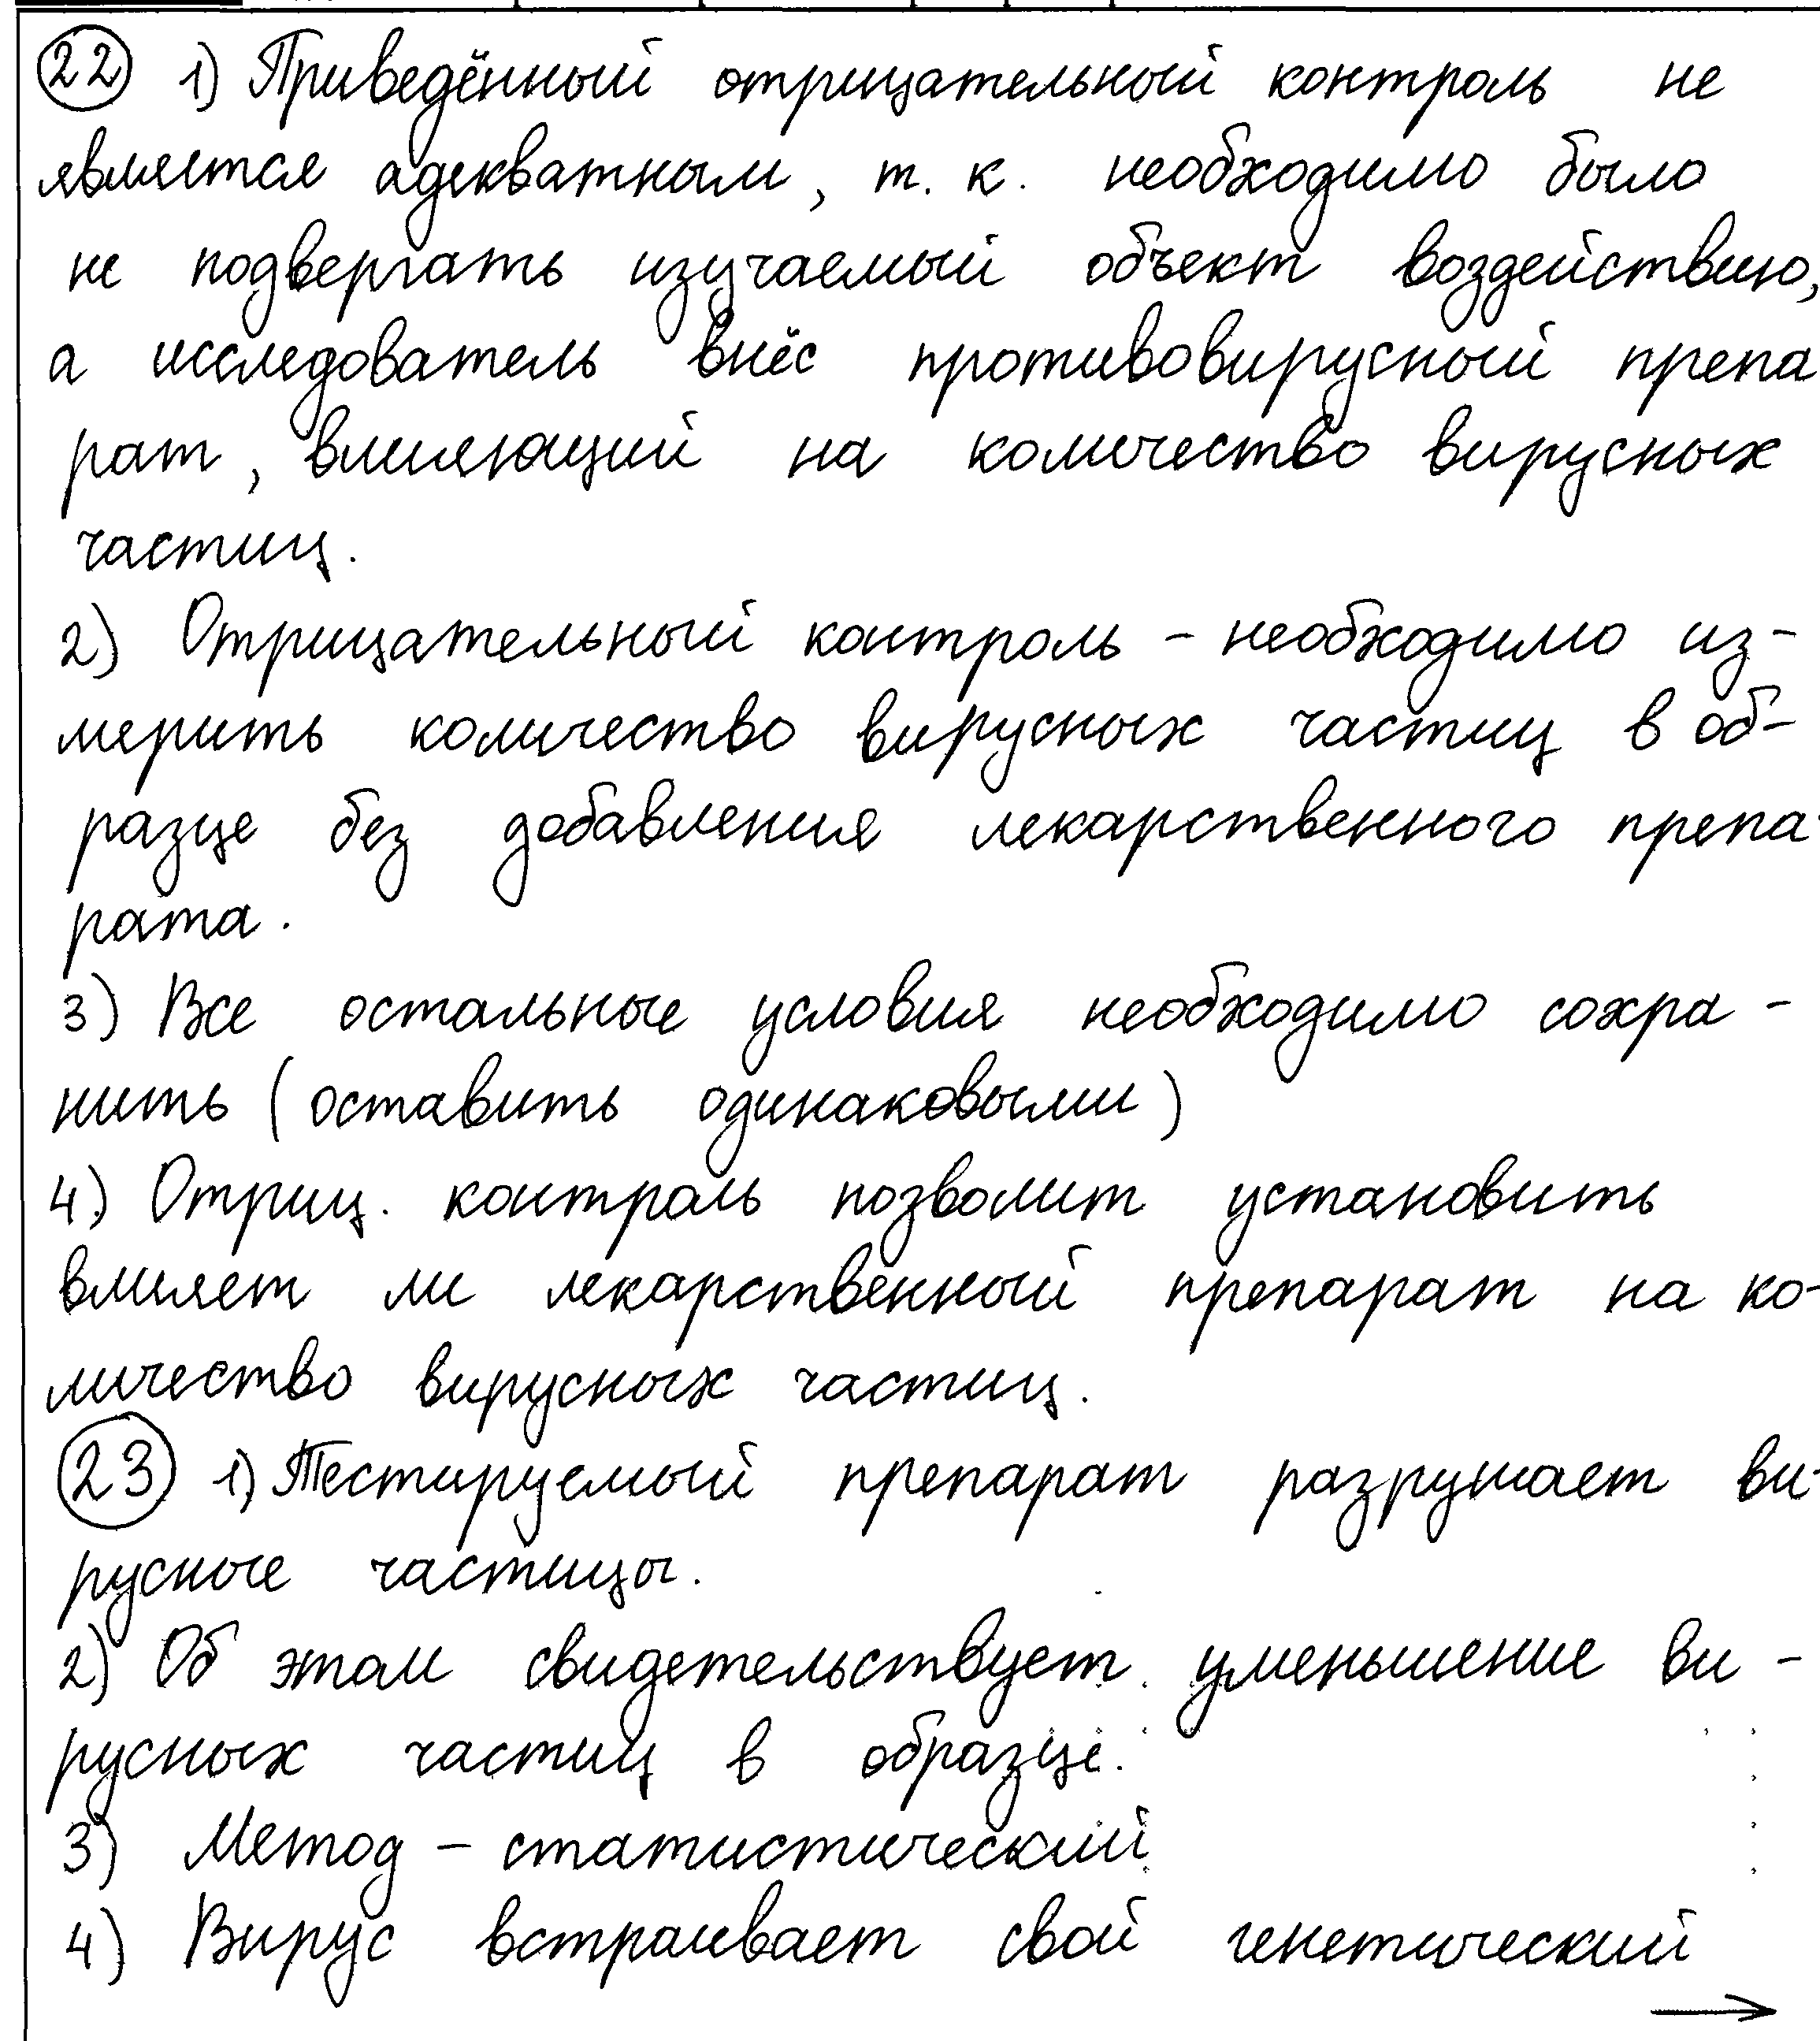 22 1) Приведённый отрицательный контроль не
является адекватным, т. к. необходимо было
не подвергать изучаемый объект воздействию,
а исследователь внёс противовирусный препа
рат, влияющий на количество вирусных
частиц.
2) Отрицательный контроль – необходимо из-
мерить количество вирусных частиц в об-
разце без добавления лекарственного препа-
рата.
3) Все остальные условия необходимо сохра-
нить (оставить одинаковыми)
4) Отриц. контроль позволит установить
влияет ли лекарственный препарат на ко-
личество вирусных частиц.
23 1) Тестируемый препарат разрушает ви-
русные частицы.
2) Об этом свидетельствует уменьшение ви-
русных частиц в образце.
3) Метод – статистический
4) Вирус встраивает свой генетический
→